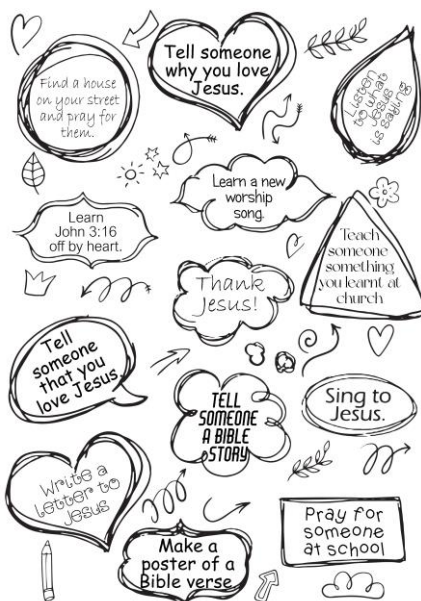 Tell someone
why you love
Jesus.
Find a house
on your street
and pray for
them.
Listen
to what
Jesus
is saying
Learn a new
worship
song.
Learn
John 3:16
off by heart.
Teach
someone
something
you learnt at
church
Thank
Jesus!
Tell
someone
that you
love Jesus
TELL
SOMEONE
A BIBLE
STORY
Sing to
Jesus.
Write a
letter to
Jesus
Pray for
someone
at school
Make a
poster of a
Bible verse.